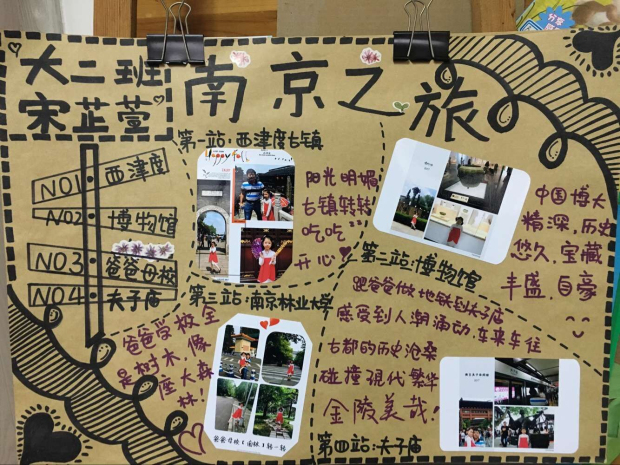 大二班
宋芷萱
南京之旅
NO1 西津度
NO2 博物馆
NO3 爸爸母校
NO4 夫子庙
第一站:西津度古镇
阳光明媚
古镇转转
吃吃
开心
第二站:博物馆
中国博大
精深,历史
悠久,宝藏
丰盛,自豪
第三站:南京林业大学
爸爸母校全
是树木,像
座大森
林!
爸爸母校(南林)转一转
跟爸爸做地铁到夫子庙
感受到人潮涌动,车来车往
古都的历史沧桑
碰撞现代繁华
金陵美哉!
第四站:夫子庙